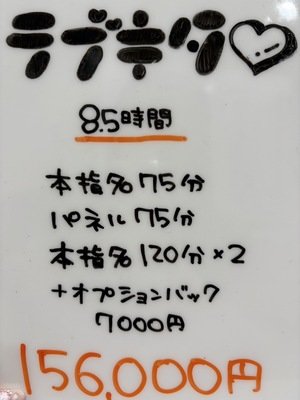 ラブキング♡
8.5時間
本指名75分
パネル75分
本指名120分×2
+オプションバック
7000円
156,000円